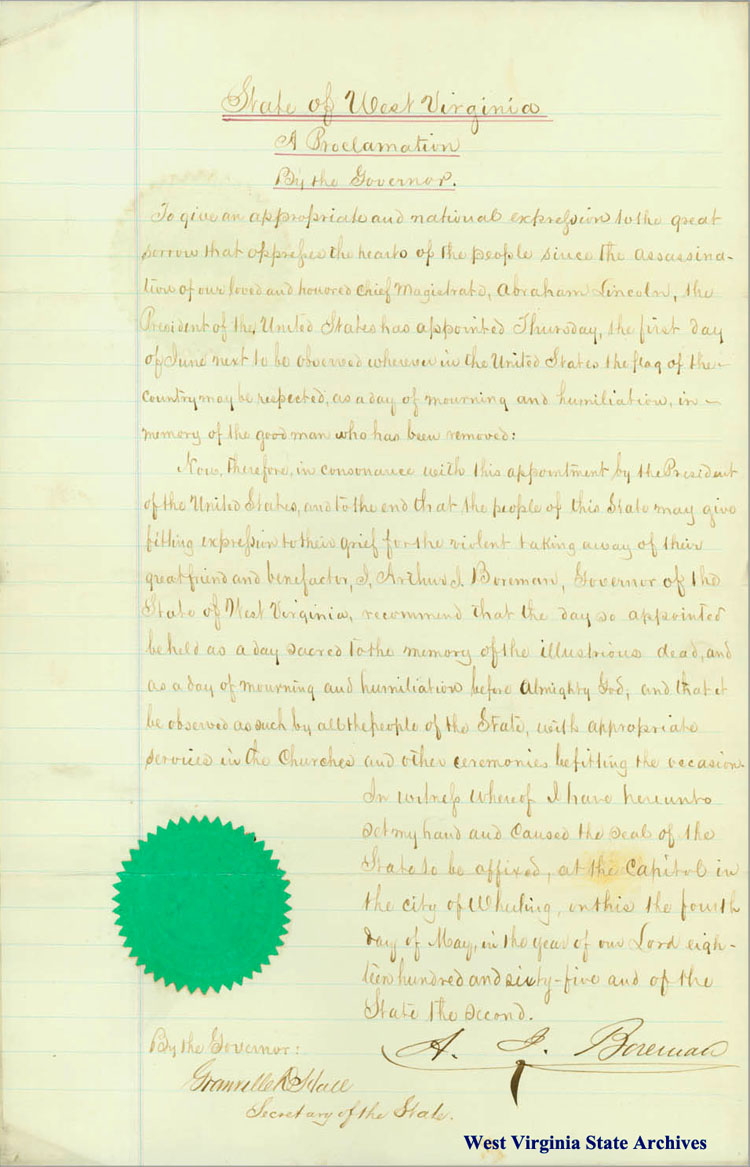 State of West Virginia
A Proclamation
By the Governor.
To give an appropriate and national expression to the great
sorrow that oppresses the hearts of the people since the assassina-
tion of our loved and honored Chief Magistrate, Abraham Lincoln, the
President of the United States has appointed Thursday, the first day
of June next to be observed wherever in the United States the flag of the
country may be respected, as a day of mourning and humiliation, in
memory of the good man who has been removed:
Now, therefore, in consonance with this appointment by the President
of the United States, and to the end that the people of this State may give
fitting expression to their grief for the violent taking away of their
great friend and benefactor, I, Arthur I. Boreman, Governor of the
State of West Virginia, recommend that the day so appointed
be held as a day sacred to the memory of the illustrious dead, and
as a day of mourning and humiliation before Almighty God, and that it
be observed as such by all the people of the State, with appropriate
services in the Churches and other ceremonies befitting the occasion.
In witness whereof I have hereunto
set my hand and caused the seal of the
State to be affixed, at the Capitol in
the city of Wheeling, on this the fourth
day of May, in the year of our Lord eigh-
teen hundred and sixty-five and of the
State the second.
A. I. Boreman
By the Governor:
Granville D. Hall
Secretary of the State.
West Virginia State Archives